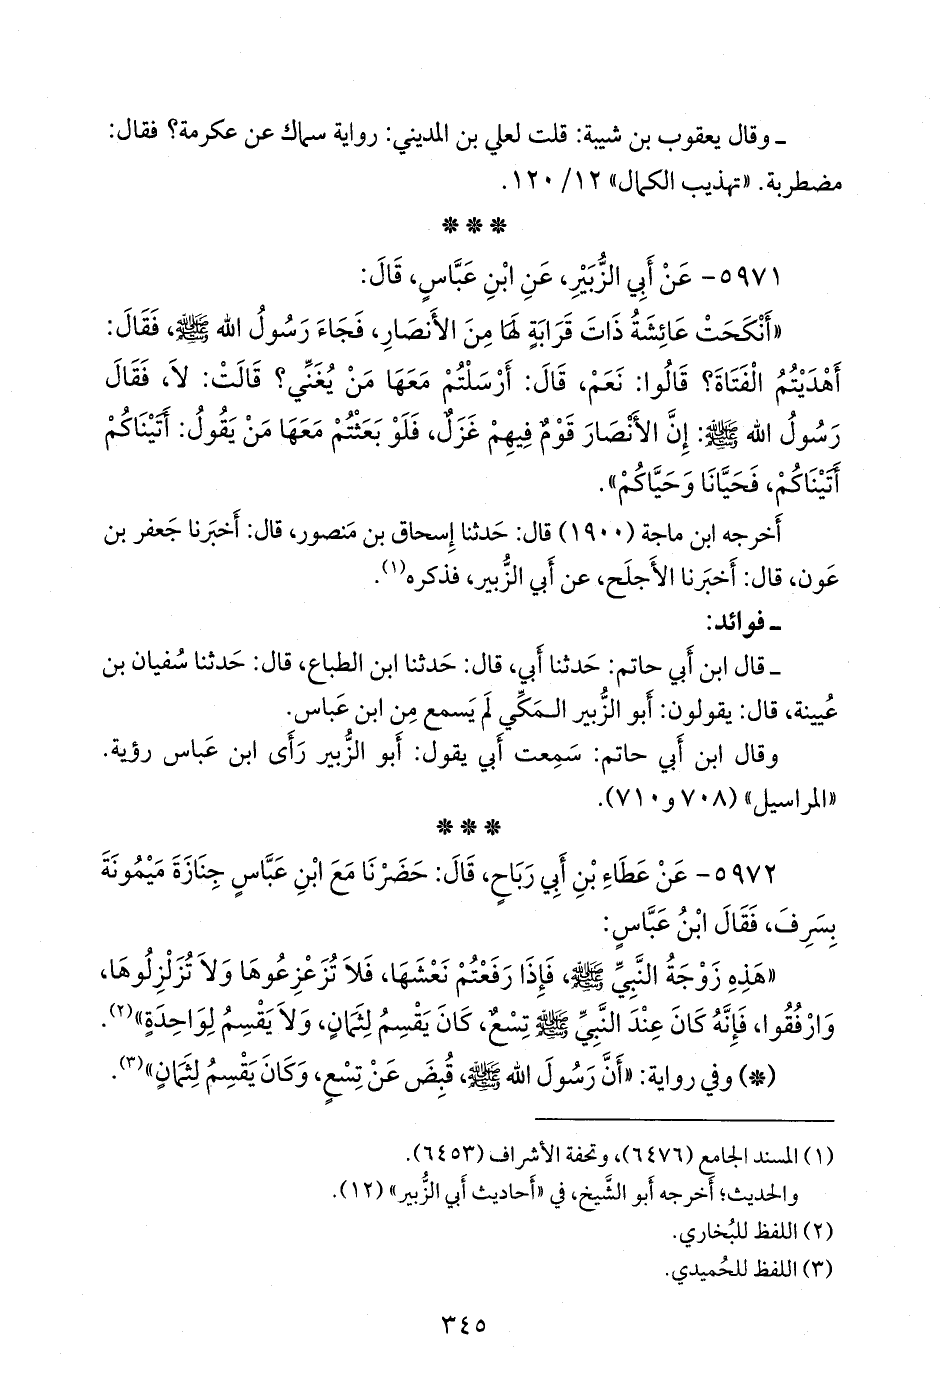 ـ وقال يعقوب بن شيبة: قلت لعلي بن المديني: رواية سماك عن عكرمة؟ فقال:
مضطربة. «تهذيب الكمال» ١٢/ ١٢٠.
***
٥٩٧١- عَنْ أَبِي الزُّبَيْرِ، عَنِ ابْنِ عَبَّاسٍ، قَالَ:
«أَنْكَحَتْ عَائِشَةُ ذَاتَ قَرَابَةٍ لَهَا مِنَ الأَنصَارِ، فَجَاءَ رَسُولُ الله ﷺ، فَقَالَ:
أَهْدَيْتُمُ الْفَتَاةَ؟ قَالُوا: نَعَمْ، قَالَ: أَرْسَلْتُمْ مَعَهَا مَنْ يُغَنِّي؟ قَالَتْ: لاَ، فَقَالَ
رَسُولُ الله ﷺ: إِنَّ الأَنْصَارَ قَوْمٌ فِيهِمْ غَزَلٌ، فَلَوْ بَعَثْتُمْ مَعَهَا مَنْ يَقُولُ: أَتَيْنَاكُمْ
أَتَيْنَاكُمْ، فَحَيَّانَا وَحَيَّاكُمْ».
أَخرجه ابن ماجة (١٩٠٠) قال: حَدثنا إِسحاق بن مَنصور، قال: أَخبَرنا جَعفر بن
عَون، قال: أَخبَرنا الأَجلَح، عن أَبي الزُّبير، فذكره(١).
ـ فوائد:
ـ قال ابن أَبي حاتم: حَدثنا أَبي، قال: حَدثنا ابن الطباع، قال: حَدثنا سُفيان بن
عُيينة، قال: يقولون: أَبو الزُّبير الـمَكِّي لَم يَسمع مِن ابن عَباس.
وقال ابن أَبي حاتم: سَمِعت أَبي يقول: أَبو الزُّبير رَأَى ابن عَباس رؤية.
«المراسيل» (٧٠٨ و٧١٠).
***
٥٩٧٢- عَنْ عَطَاءِ بْنِ أَبِي رَبَاحٍ، قَالَ: حَضَرْنَا مَعَ ابْنِ عَبَّاسٍ جِنَازَةَ مَيْمُونَةَ
بِسَرِفَ، فَقَالَ ابْنُ عَبَّاسٍ:
«هَذِهِ زَوْجَةُ النَّبِيِّ ﷺ، فَإِذَا رَفَعْتُمْ نَعْشَهَا، فَلاَ تُزَعْزِعُوهَا وَلاَ تُزَلْزِلُوهَا،
وَارْفُقُوا، فَإِنَّهُ كَانَ عِنْدَ النَّبِيِّ ﷺ تِسْعٌ، كَانَ يَقْسِمُ لِثَمَانٍ، وَلاَ يَقْسِمُ لِوَاحِدَةٍ»(٢).
(*) وفي رواية: «أَنَّ رَسُولَ الله ﷺ، قُبِضَ عَنْ تِسْعٍ، وَكَانَ يَقْسِمُ لِثَمَانٍ»(٣).
(١) المسند الجامع (٦٤٧٦)، وتحفة الأشراف (٦٤٥٣).
والحديث؛ أَخرجه أبو الشَّيخ، في «أَحاديث أَبي الزُّبير» (١٢).
(٢) اللفظ للبُخاري.
(٣) اللفظ للحُميدي.
٣٤٥